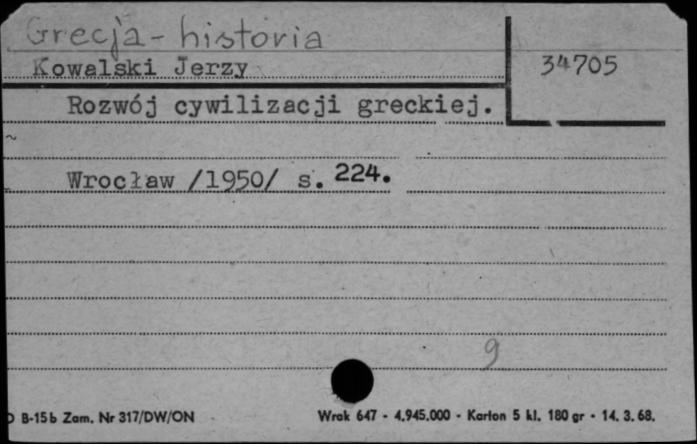 Grecja - historia
Kowalski Jerzy
34705
Rozwój cywilizacji greckiej.
Wrocław /1950/ s. 224.
9
B-15b Zam. Nr 317/DW/ON
Wrak 647 - 4.945.000 - Karton 5 kl. 180 gr - 14. 3. 68.